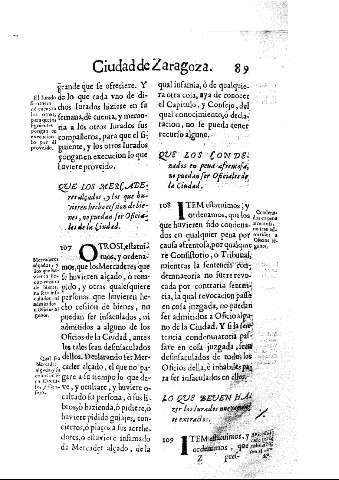 Ciudad de Zaragoza. 89
grande que se ofreciere. Y
de lo que cada vno de di-
chos Iurados hiziere en su
semana, dè cuenta, y memo-
ria a los otros Iurados sus
compañeros, para que el si-
guiente, y los otros Iurados
pongan en execucion lo que
huviere proveido.
QUE LOS MERCADE-
res alçados, y los que hu-
vieren hecho cession de bie-
nes, no puedan ser Oficia-
les de la Ciudad.
107 OTROSI, estatui-
mos, y ordena-
mos, que los Mercaderes que
se huvieren alçado, ò rom-
pido, y otras qualesquiere
personas que huvieren he-
cho cession de bienes, no
puedan ser insaculados, ni
admitidos a alguno de los
Oficios de la Ciudad, antes
los tales sean desinsaculados
dellos. Declarando ser Mer-
cader alçado, el que no pa-
gare a se tiempo lo que de-
ve, y ocultare, y huviere o-
cultado su persona, ò sus li-
bros, ò hazienda, ò pidiere, ò
huviere pidido guiajes, con-
ciertos, ò plaços a sus acrehe-
dores, ò estuviere infamado
de Mercader alçado, de la
qual infamia, ò de qualquie-
ra otra cosa, aya de conocer
el Capitulo, y Consejo, del
qual conocimiento, ò decla-
racion, no se pueda tener
recurso alguno.
QUE LOS CONDE-
nados en pena afrentosa,
no puedan ser Oficiales de
la Ciudad.
108 ITEM estatuimos, y
ordenamos, que los
que huvieren sido condena-
dos en qualquier pena por
causa afrentosa, por qualquie-
re Consistorio, ò Tribunal,
mientras la sentencia con-
demnatoria no fuere revo-
cada por contraria senten-
cia, la qual revocacion passe
en cosa juzgada, no puedan
ser admitidos a Oficio algu-
no de la Ciudad. Y si la sen-
tencia condenatoria passa-
re en cosa juzgada, sean
desinsaculados de todos los
Oficios della, è inhabiles pa-
ra ser insaculados en ellos.
LO QUE DEUEN HA-
zer los Iurados nuevamente
extractos.
109 ITEM estatuimos, y
ordenamos, que
Z